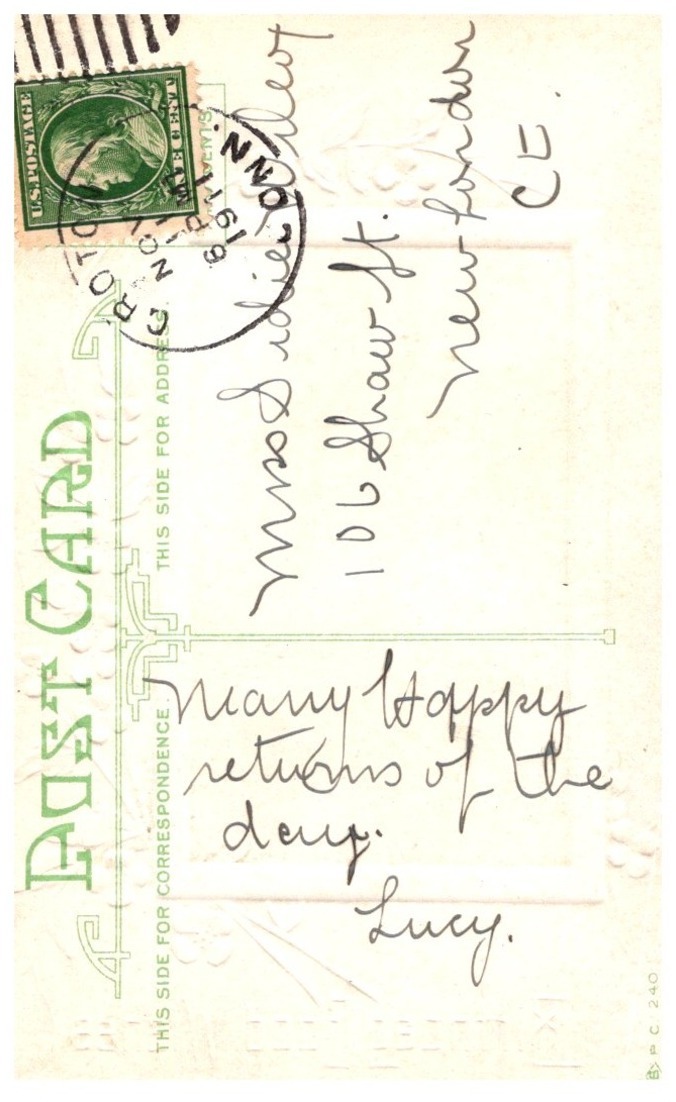 POST CARD
THIS SIDE FOR CORRESPONDENCE.
THIS SIDE FOR ADDRESS.
U.S. POSTAGE
ONE CENT
GROTON
CONN.
NOV
1911
Many Happy
returns of the
day.
Lucy.
Miss Sidie
106 Shaw St.
New London
Ct.
P C 240